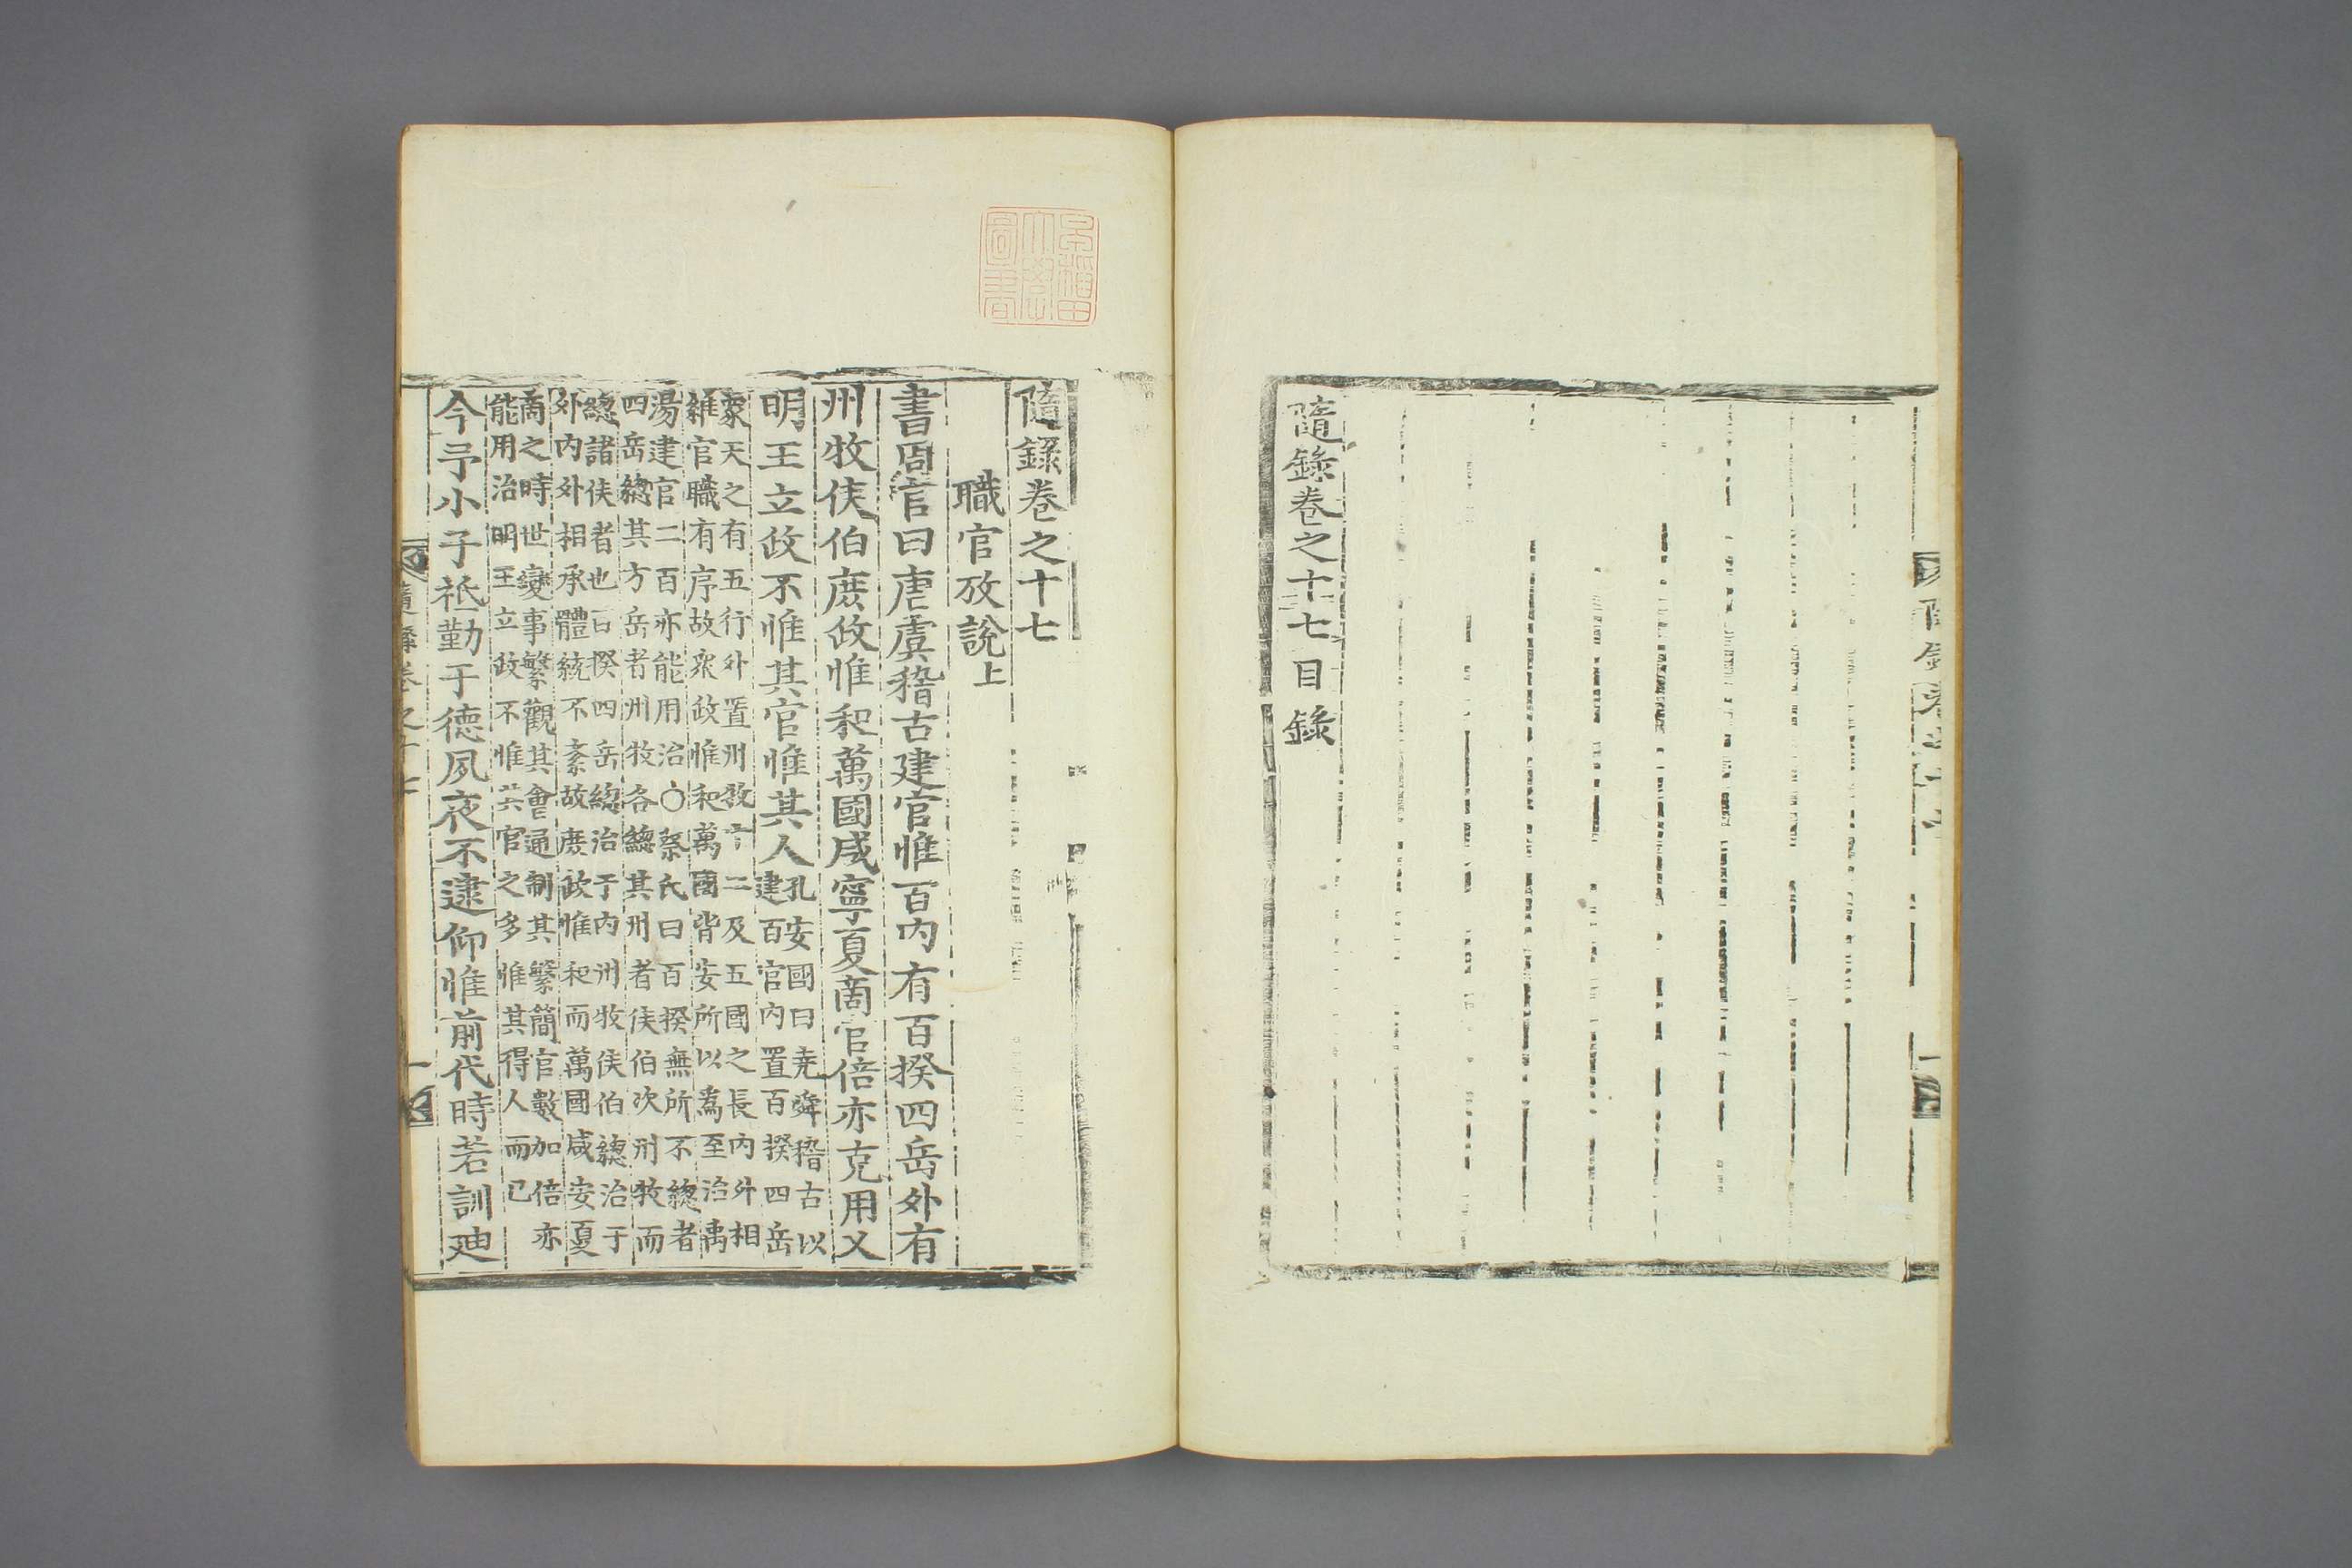 隨錄卷之十七目錄
早稻田
大學
圖書
隨錄卷之十七
職官攷說上
書周官曰唐虞稽古建官惟百內有百揆四岳外有
州牧侯伯庶政惟和萬國咸寧夏商官倍亦克用乂
明王立政不惟其官惟其人
孔安國曰堯舜稽古以
建百官內置百揆四岳
象天之有五行外置州牧十二及五國之長內外相
維官職有序故衆政惟和萬國皆安所以爲至治禹
湯建官二百亦能用治○蔡氏曰百揆無所不總者
四岳總其方岳者州牧各總其州者侯伯次州牧而
總諸侯者也曰揆四岳總治于內州牧侯伯總治于
外內外相承體統不紊故庶政惟和而萬國咸安夏
商之時世變事繁觀其會通制其繁簡官數加倍亦
能用治明王立政不惟其官之多惟其得人而已
今予小子祗勤于德夙夜不逮仰惟前代時若訓迪
隨錄卷之十七
一